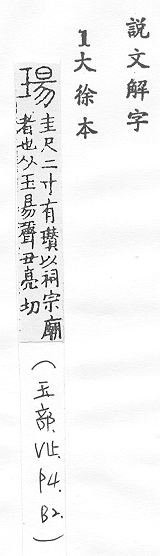 説文解字
1大徐本
瑒 圭尺二寸有瓚以祠宗廟
者也从玉昜聲丑亮切
(玉部、V15、P4、B2.)